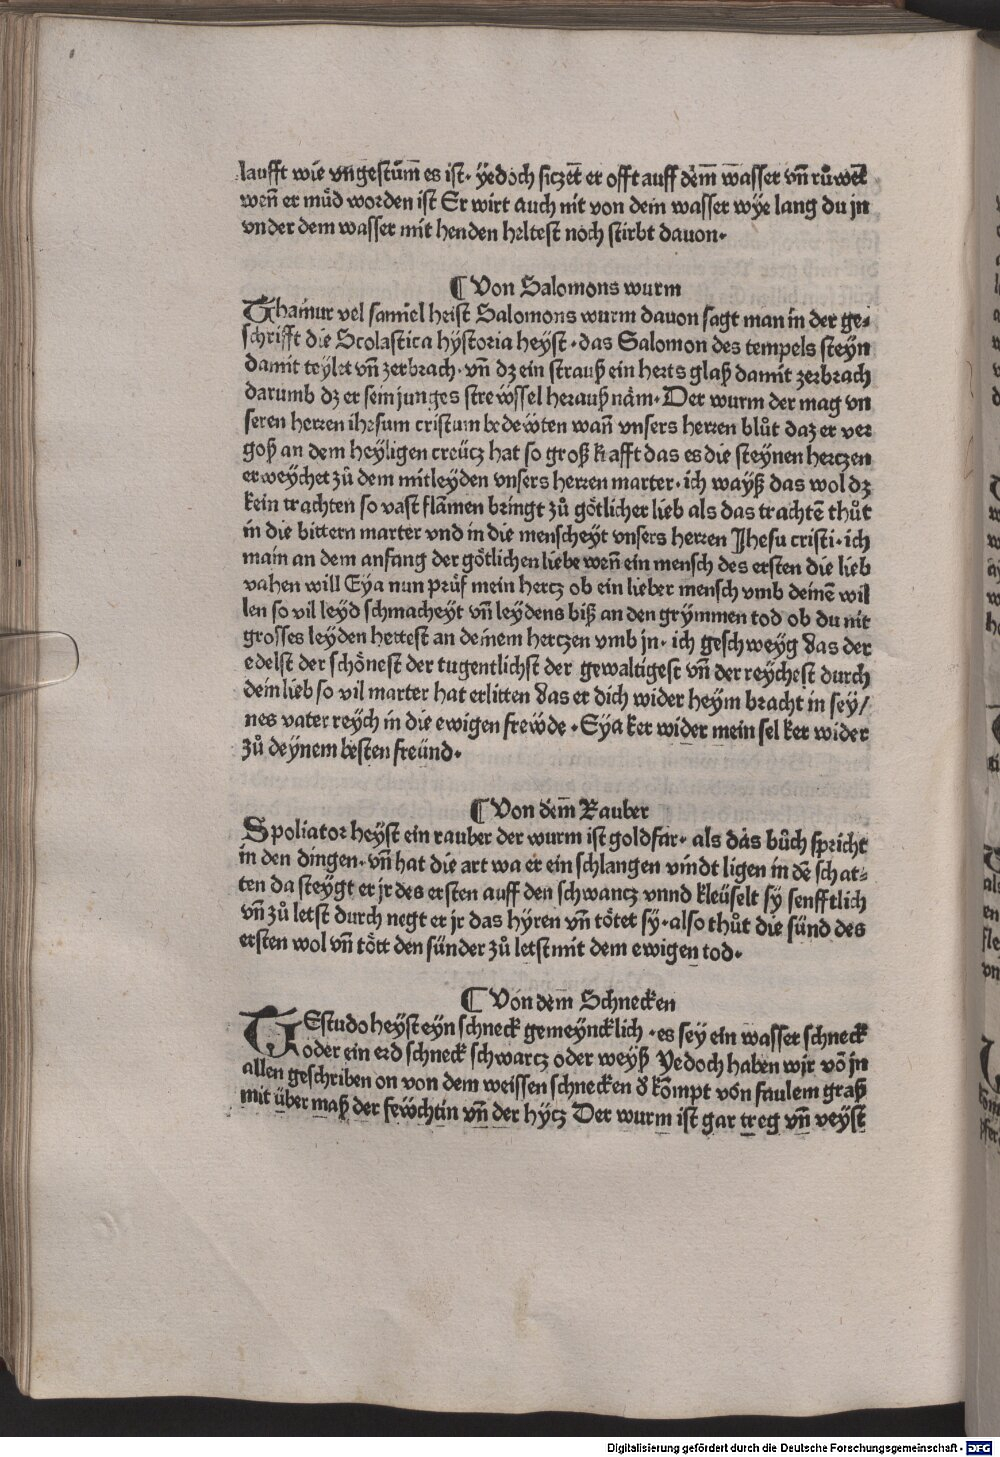 laufft wie vngestům̄ es ist· ÿedoch siczet er offt auff dem̄ wasser vn̄ růwet
wen̄ er müd worden ist Er wirt auch nit von dem wasser wÿe lang du jn
vnder dem wasser mit henden heltest noch stirbt davon·
¶ Von Salomons wurm
Thamur vel samiel heist Salomons wurm davon sagt man in der ge⸗
schrifft die Scolastica hÿstoria heyst· das Salomon des tempels steÿn
damit teÿlet vn̄ zerbrach· vn̄ dz ein strauß ein herts glaß damit zerbrach
darumb dz er sein junges strewssel herauß näm· Der wurm der mag vn
seren herren ihesum cristum bedewten wan̄ vnsers herren blůt daz er ver
goß an dem heÿligen creücz hat so groß krafft das es die steÿnen hertzen
erweychet zů dem mitleÿden vnsers herren marter· ich wayß das wol dz
kein trachten so vast flāmen bringt zů götlicher lieb als das trachtē thůt
in die bittern marter vnd in die menscheyt vnsers herren Jhesu cristi· ich
main an dem anfang der götlichen liebe wen̄ ein mensch des ersten die lieb
vahen will Eya nun prüf mein hertz ob ein lieber mensch vmb deinē wil
len so vil leyd schmacheyt vn̄ leydens biß an den grÿmmen tod ob du nit
grosses leyden hettest an deinem hertzen vmb jn· ich geschweÿg das der
edelst der schönest der tugentlichst der gewaltigest vn̄ der reÿchest durch
dein lieb so vil marter hat erlitten das er dich wider heÿm bracht in sey/
nes vater reÿch in die ewigen frewde· Eya ker wider mein sel ker wider
zů deÿnem besten freünd·
¶ Von dem̄ Rauber
Spoliator heÿst ein rauber der wurm ist goldfar· als das bůch spricht
in den dingen· vn̄ hat die art wa er ein schlangen vindt ligen in dē schat⸗
ten da steÿgt er jr des ersten auff den schwancz vnnd kleüselt sÿ senfftlich
vn̄ zů letst durch negt er jr das hÿren vn̄ tötet sÿ· also thůt die sünd des
ersten wol vn̄ tött den sünder zů letst mit dem ewigen tod·
¶ Von dem Schnecken
TEstudo heÿst eyn schneck gemeyncklich· es sey ein wasser schneck
oder ein erd schneck schwarcz oder weÿß Yedoch haben wir vō jn
allen geschriben on von dem weissen schnecken d̄ kom̄pt von faulem graß
mit über maß der fewchtin vn̄ der hÿcz Der wurm ist gar treg vn̄ veÿst
Digitalisierung gefördert durch die Deutsche Forschungsgemeinschaft - DFG